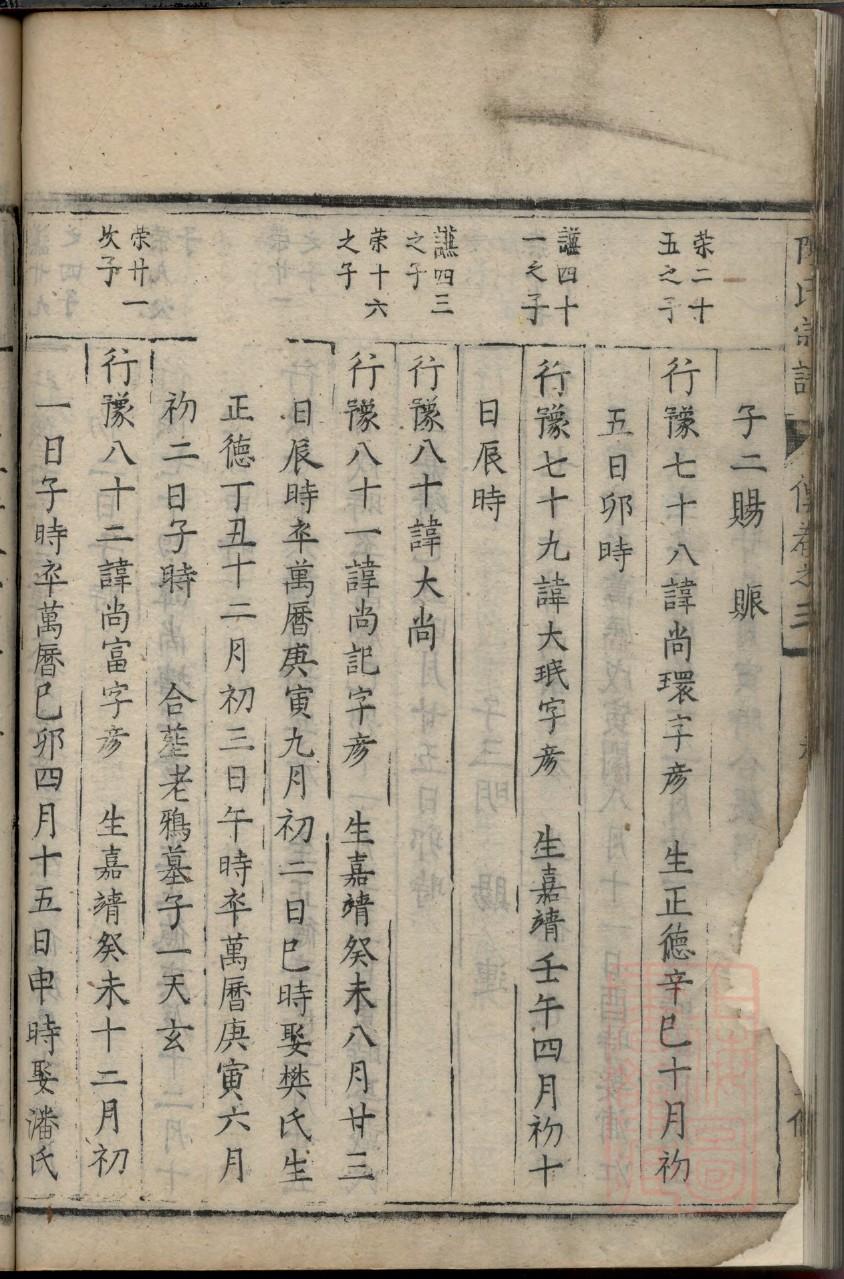 陳氏宗譜 傳卷之三
子二賜 賑
榮二十
五之子
行豫七十八諱尚環字彥 生正德辛巳十月初
五日卯時
謹四十
一之子
行豫七十九諱大珉字彥 生嘉靖壬午四月初十
日辰時
謹四三
之子
行豫八十諱大尚
榮十六
之子
行豫八十一諱尚記字彥 生嘉靖癸未八月廿三
日辰時卒萬曆庚寅九月初二日巳時娶樊氏生
正德丁丑十二月初三日午時卒萬曆庚寅六月
初二日子時 合塟老鴉墓子一天玄
榮廿一
次子
行豫八十二諱尚富字彥 生嘉靖癸未十二月初
一日子時卒萬曆己卯四月十五日申時娶潘氏